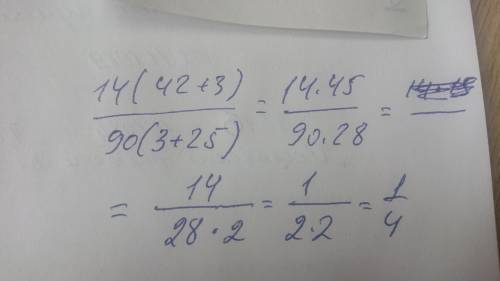 14(42+3)/90(3+25) = 14.45/90.28 =
= 14/28·2 = 1/2·2 = 1/4